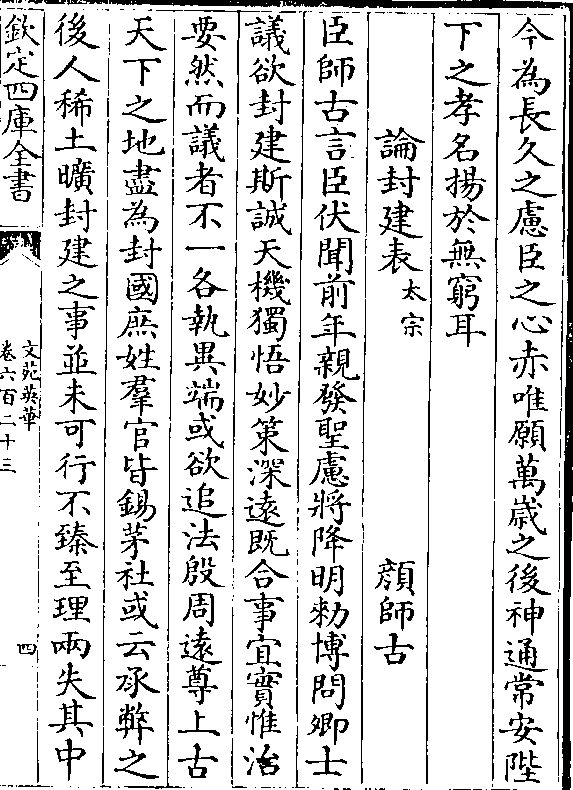 今為長久之慮臣之心赤唯願萬歳之後神通常安陛
下之孝名揚於無窮耳
論封建表太宗 顔師古
臣師古言臣伏聞前年親發聖慮將降明勑博問卿士
議欲封建斯誠天機獨悟妙策深遠既合事宜實惟治
要然而議者不一各執異端或欲追法殷周遠尊上古
天下之地盡為封國庶姓羣官皆錫茅社或云承弊之
後人稀土曠封建之事並未可行不臻至理兩失其中
欽定四庫全書
文苑英華
卷六百二十三
四